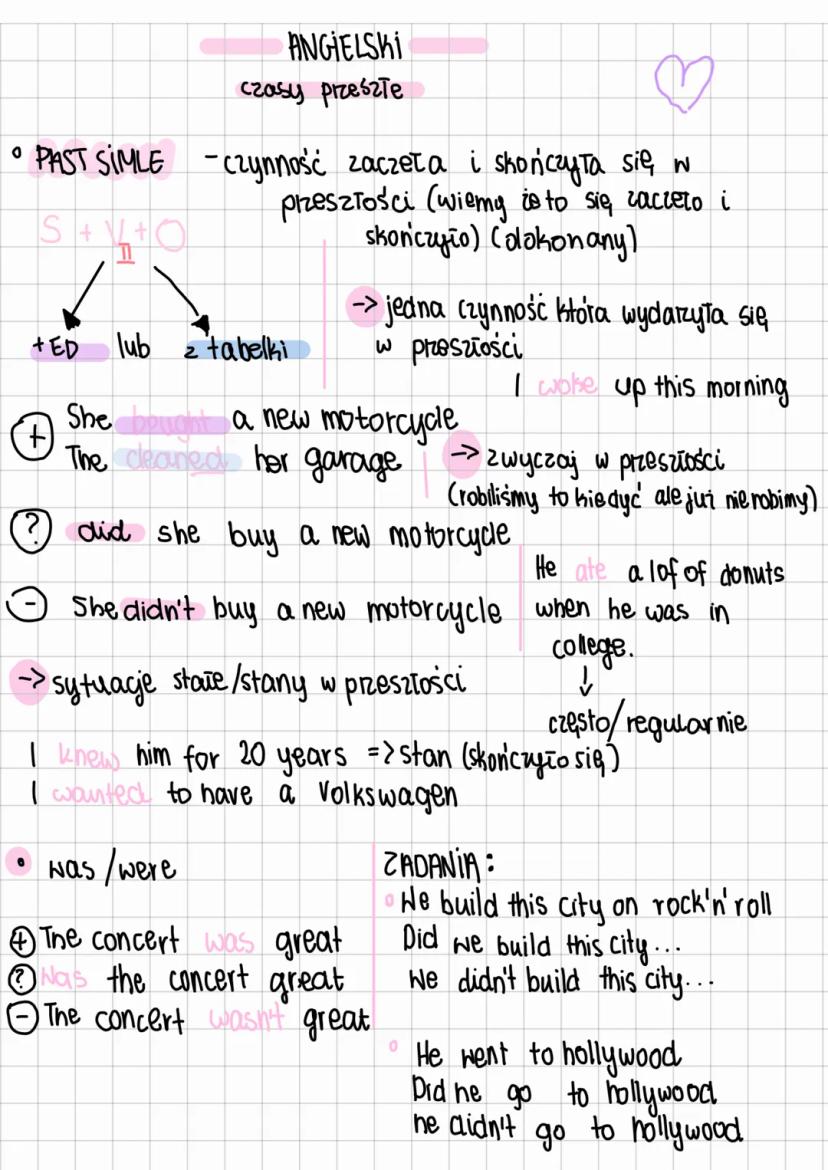 ANGIELSKI
czasy przeszłe
PAST SIMLE - czynność zaczeła i skończyła się w
przeszłości (wiemy że to się zaczeło i
skończyło) (dokonany)
S + V + O
II
+ED lub z tabelki
-> jedna czynność która wydarzyła się
w przeszłości
I woke up this morning
+ She bought a new motorcycle
The cleaned her garage
-> zwyczaj w przeszłości
(robiliśmy to kiedyć ale już nie robimy)
? did she buy a new motorcycle
- She didn't buy a new motorcycle
He ate a lof of donuts
when he was in
college.
↓
często/regularnie
-> sytuacje stałe/stany w przeszłości
I knew him for 20 years => stan (skończyło się)
I wanted to have a Volkswagen
• was/were
+ The concert was great
? Was the concert great
- The concert wasn't great
ZADANIA:
We build this city on rock'n'roll
Did we build this city...
We didn't build this city...
He went to hollywood
Did he go to hollywood
he didn't go to hollywood